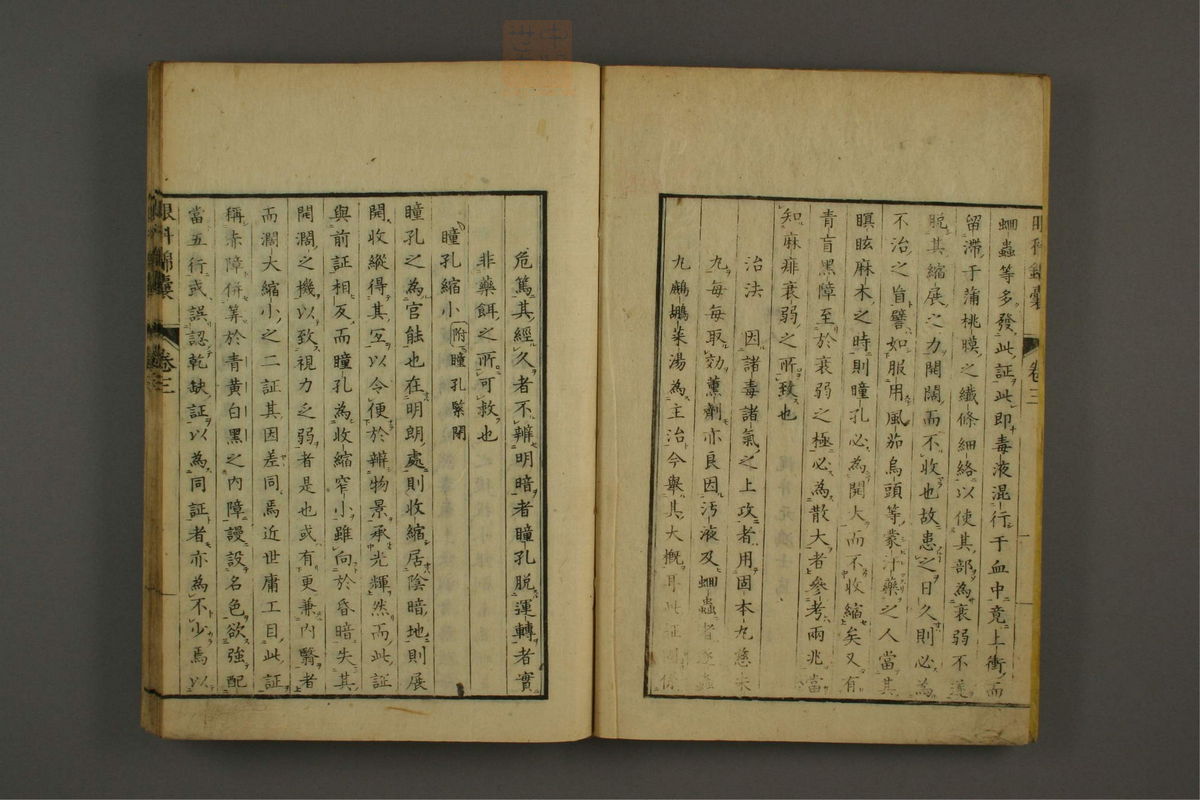 眼科錦囊 卷三
蛔蟲等多發此証此即毒液混行于血中竟上衝而
留滯于蒲桃膜之纖條細絡以使其部為衰弱不遂
脫其縮展之力開闊而不收也故患之日久則必為
不治之旨譬如服用風茄烏頭等蒙汁藥之人當其
瞑眩麻木之時則瞳孔必為開大而不收縮矣又有
青盲黑障至於衰弱之極必為散大者參考兩兆當
知麻痱衰弱之所致也
治法 因諸毒諸氣之上攻者用固本丸
丸每每取効薰劑亦良因污液及蛔蟲者
丸鷓鴣菜湯為主治今舉其大概耳此証
危篤其經久者不辨明暗者瞳孔脫運轉者實
非藥餌之所可救也
瞳孔縮小 附瞳孔緊閉
瞳孔之為官能也在明朗處則收縮居陰暗地則展
開收縱得其宜以令便於辨物景承光輝然而此証
與前証相反而瞳孔為收縮窄小雖向於昏暗失其
開濶之機以致視力之弱者是也或有更兼內翳者
而濶大縮小之二証其因差同焉近世庸工目此証
稱赤障併筭於青黃白黑之內障謾設名色欲強配
當五行或誤認乾缺証以為同証者亦為不少焉以
眼科錦囊 卷三